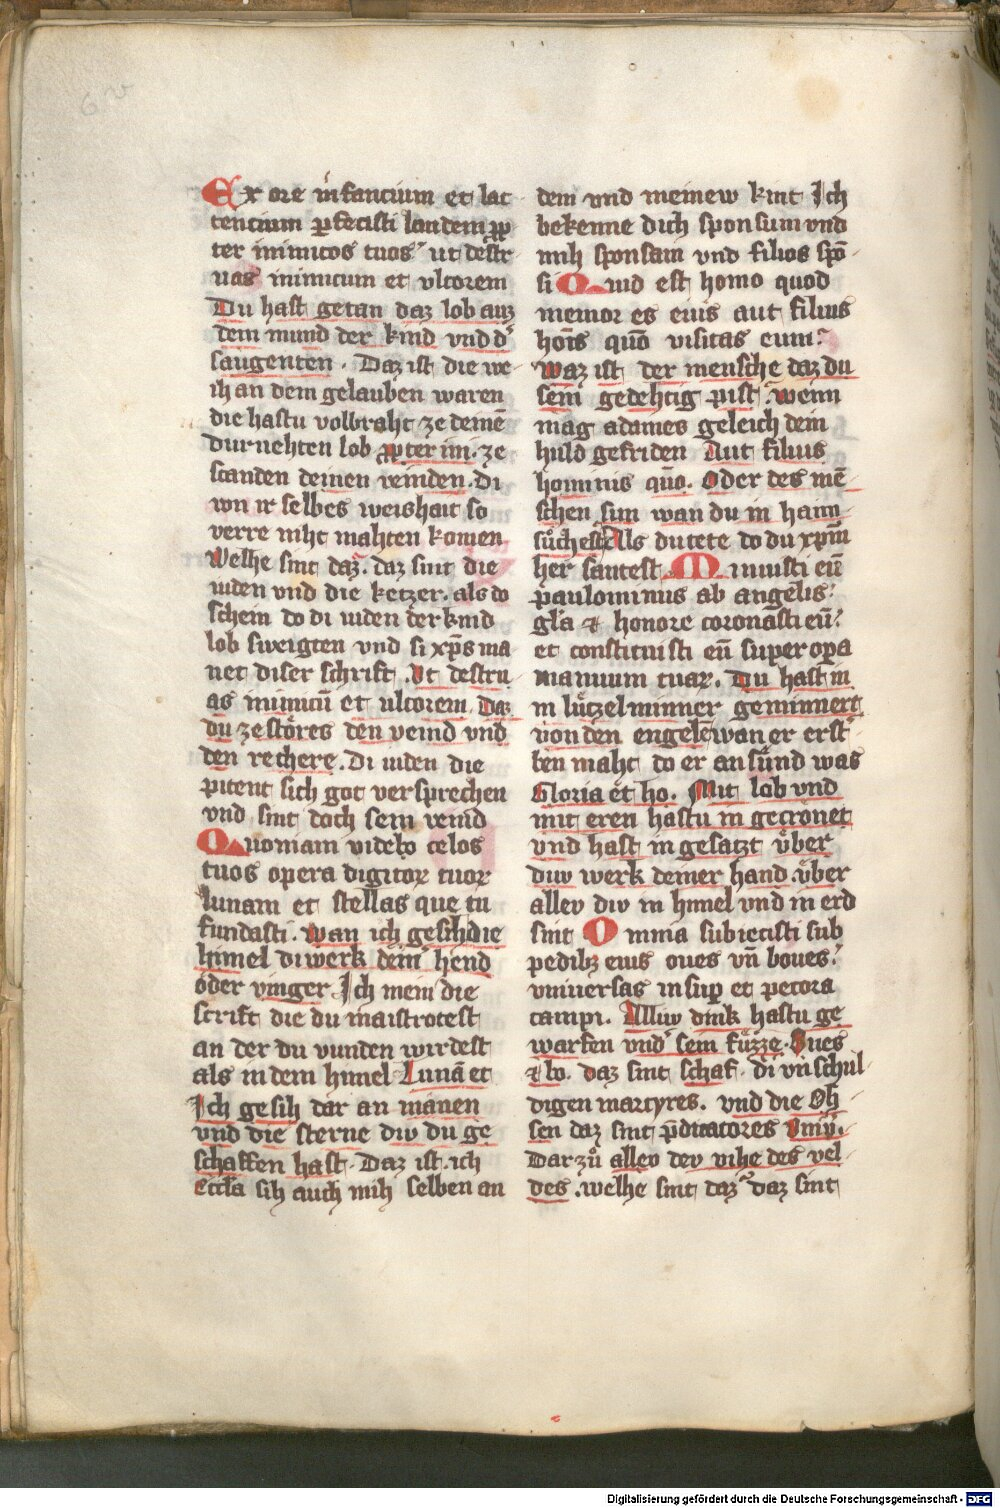 6v
Ex ore infancium et lac
tencium ꝑfecisti laudem ꝓp
ter inimicos tuos ut destr
uas inimicum et vltorem
Du hast getan daz lob auz
dem mund der kind vnd d̾
saugenten . Daz ist die we
ih an dem gelauben waren
die hastu volbraht ze deinē
durnehten lob ꝓpter ini. ze
scanden deinen veinden. Di
von ir selbes weishait so
verre niht mahten komen
Welhe sint daz. daz sint die
iuden vnd die ketzer. als do
schein do di iuden der kind
lob sweigten vnd si xp̄s ma
net diser schrift . Ut destru
as inimicū et ultorem. Daz
du zestöres den veind vnd
den rechere. Di iuden die
pitent sich got versprechen
vnd sint doch sein veind
Quoniam videbo celos
tuos opera digitoꝝ tuoꝝ
lunam et stellas que tu
fundasti. Wan ich gesih die
himel di werk dein̾ hend
oder vinger Ich mein die
scrift die du maistrotest
an der du vunden wirdest
als in dem himel Lunā et
Ich gesih dar an mānen
vnd die sterne div du ge
schaffen hast. Daz ist. ich
Eccl̄a sih auch mih selben an
dem vnd meinew kint Ich
bekenne dich sponsum vnd
mih sponsam vnd filios spō
si Quid est homo quod
memor es eius aut filius
hoīs quō visitas eum?
Waz ist der mensche daz du
sein gedehtig pist . wenn
mag adames geleich dein
huld gefriden Aut filius
hominis quō. Oder des mē
schen sun wan du in haim
sůchest Als du tete do du xpm̄
her santest . Minuisti eū
paulominus ab angelis?
gl̄a ⁊ honore coronasti eū?
et constituisti eū super opa
manuum tuaꝝ. Du hast in
in lützel minner geminnert
von den engelē wan er erst
ben maht do er an sünd was
Gloria et ho. Mit lob vnd
mit eren hastu in gecronet
vnd hast in gesatzt über
div werk deiner hand. über
allev div in himel vnd in erd
sint Omnia subiecisti sub
pedibꝫ eius oues vn̄ boues?
vniuersas insup et pecora
campi. Alliv dink hastu ge
warfen vnd̾ sein fůzze. Oues
⁊ bo. daz sint schaf . di vnschul
digen martyres. vnd die Oh
sen daz sint p̄dicatores Vniū.
Dar zů allev dev vihe des vel
des . welhe sint daz daz sint
Digitalisierung gefördert durch die Deutsche Forschungsgemeinschaft - DFG